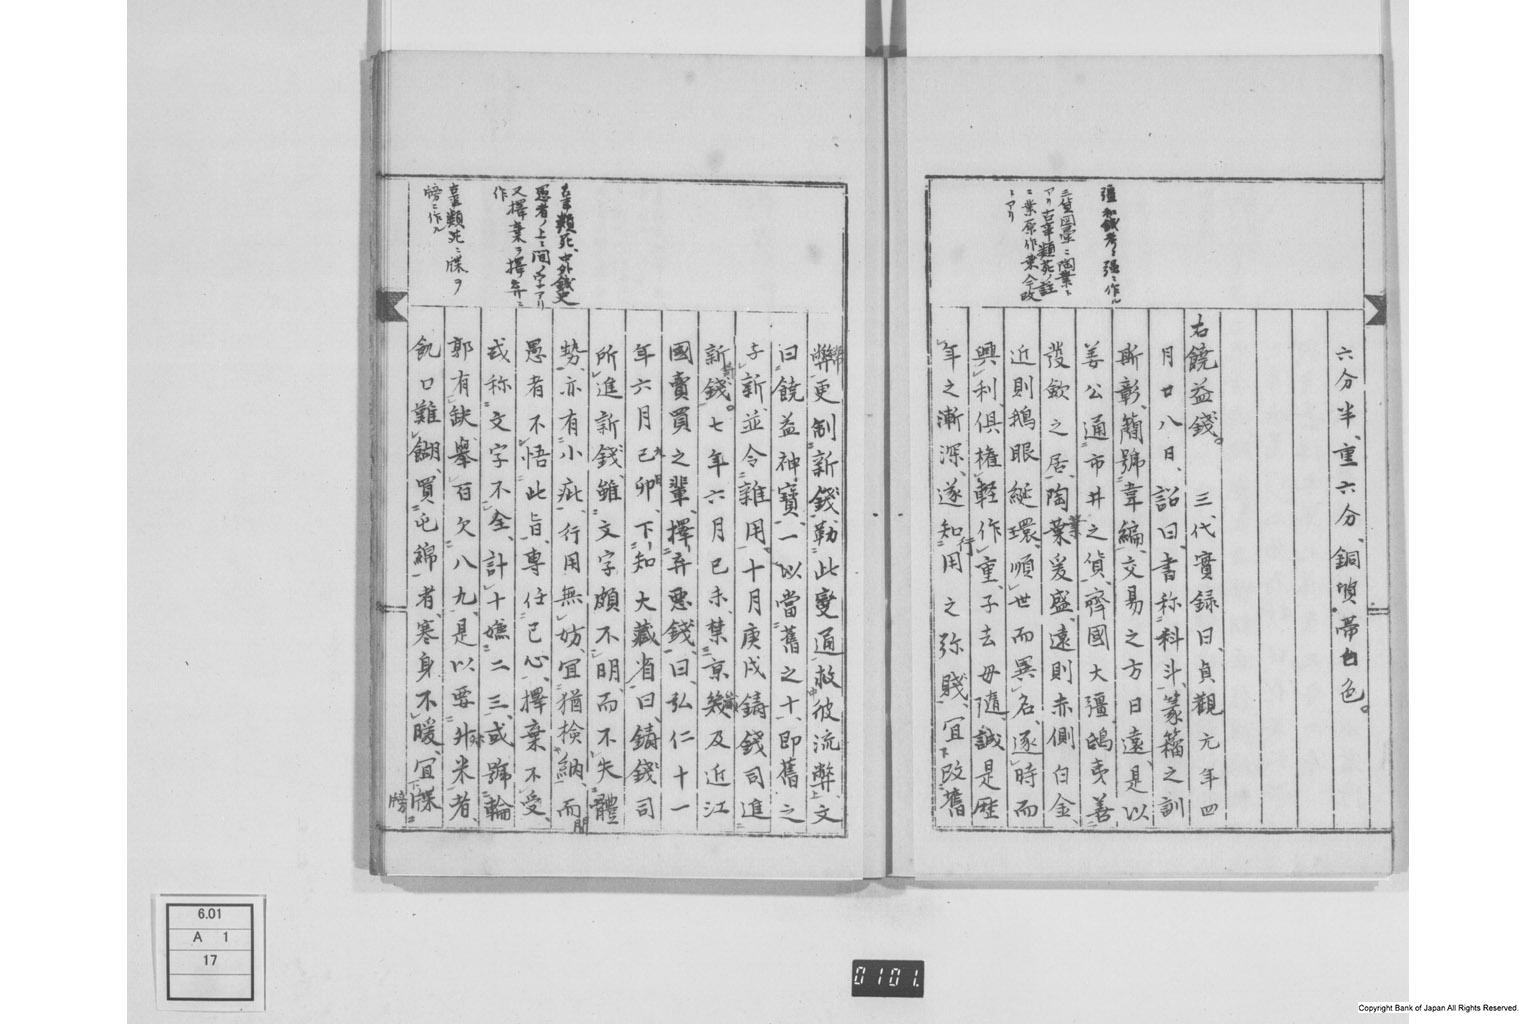 六分半、重六分、銅質帶白色。
右饒益錢。 三代實録曰、貞觀元年四
月廿八日、詔曰、書称科斗、篆籀之訓
斯彰、簡號韋編、交易之方日遠、是以
姜公通市井之貨、齊國大彊、鴟夷善
發歛之居、陶葉爰盛、遠則赤側白金、
近則鵝眼綖環、順世而異名、逐時而
興利、俱権軽作重、子去母隨、誠是歴
年之漸深、遂知用之弥賤、宜改舊
弊更制新錢、勒此變通、救彼流弊、文
曰饒益神寶、一以當舊之十、即舊之
与新、並令雜用、十月庚戌鑄錢司進
新錢。七年六月己未、禁京幾及近江
國賣買之輩、擇弃悪錢、曰、弘仁十一
年六月己卯、下知大藏省曰、鑄錢司
所進新錢、雖文字頗不明、而不失體
勢、亦有小疵、行用無妨、宜猶檢納、而
愚者不悟此旨、專任己心、擇棄不受、
或称文字不全、計十嫌二三、或號輪
郭有缺、舉百欠八九、是以要升米者、
飢口難餬、買屯綿者、寒身不暖、宜牒
彊 和錢考ニ強ニ作ル
三貨図彙ニ陶業ニ
アリ古事類苑ノ註
ニ業原作葉今改
トアリ
古事類苑、中外錢史
愚者ノ上ニ間ノ字アリ
又擇棄ヲ擇弃ニ
作
古事類苑ニ牒ヲ
牓ニ作ル
6.01
A 1
17
0101.
Copyright Bank of Japan All Rights Reserved.